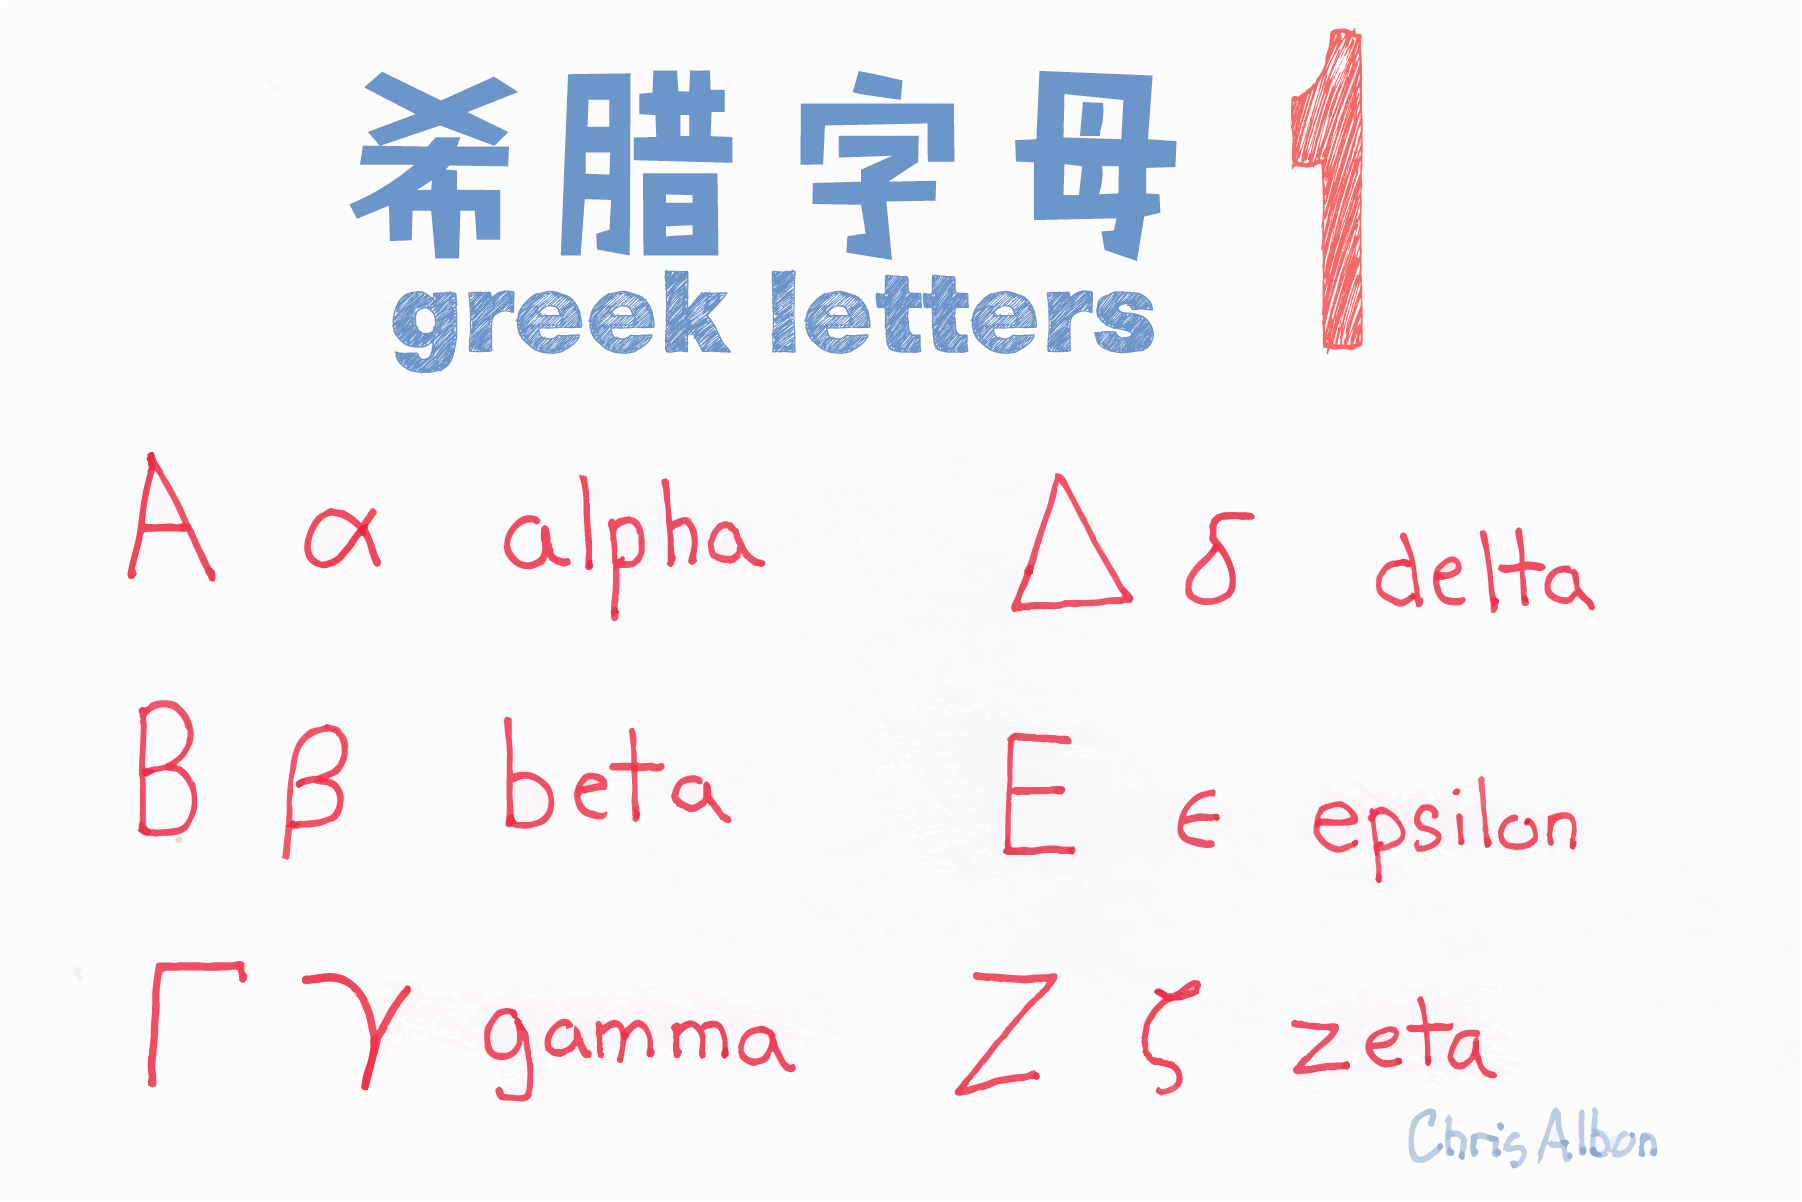 希腊字母 1
greek letters
Α α alpha
Β β beta
Γ γ gamma
Δ δ delta
Ε ϵ epsilon
Ζ ζ zeta
Chris Albon